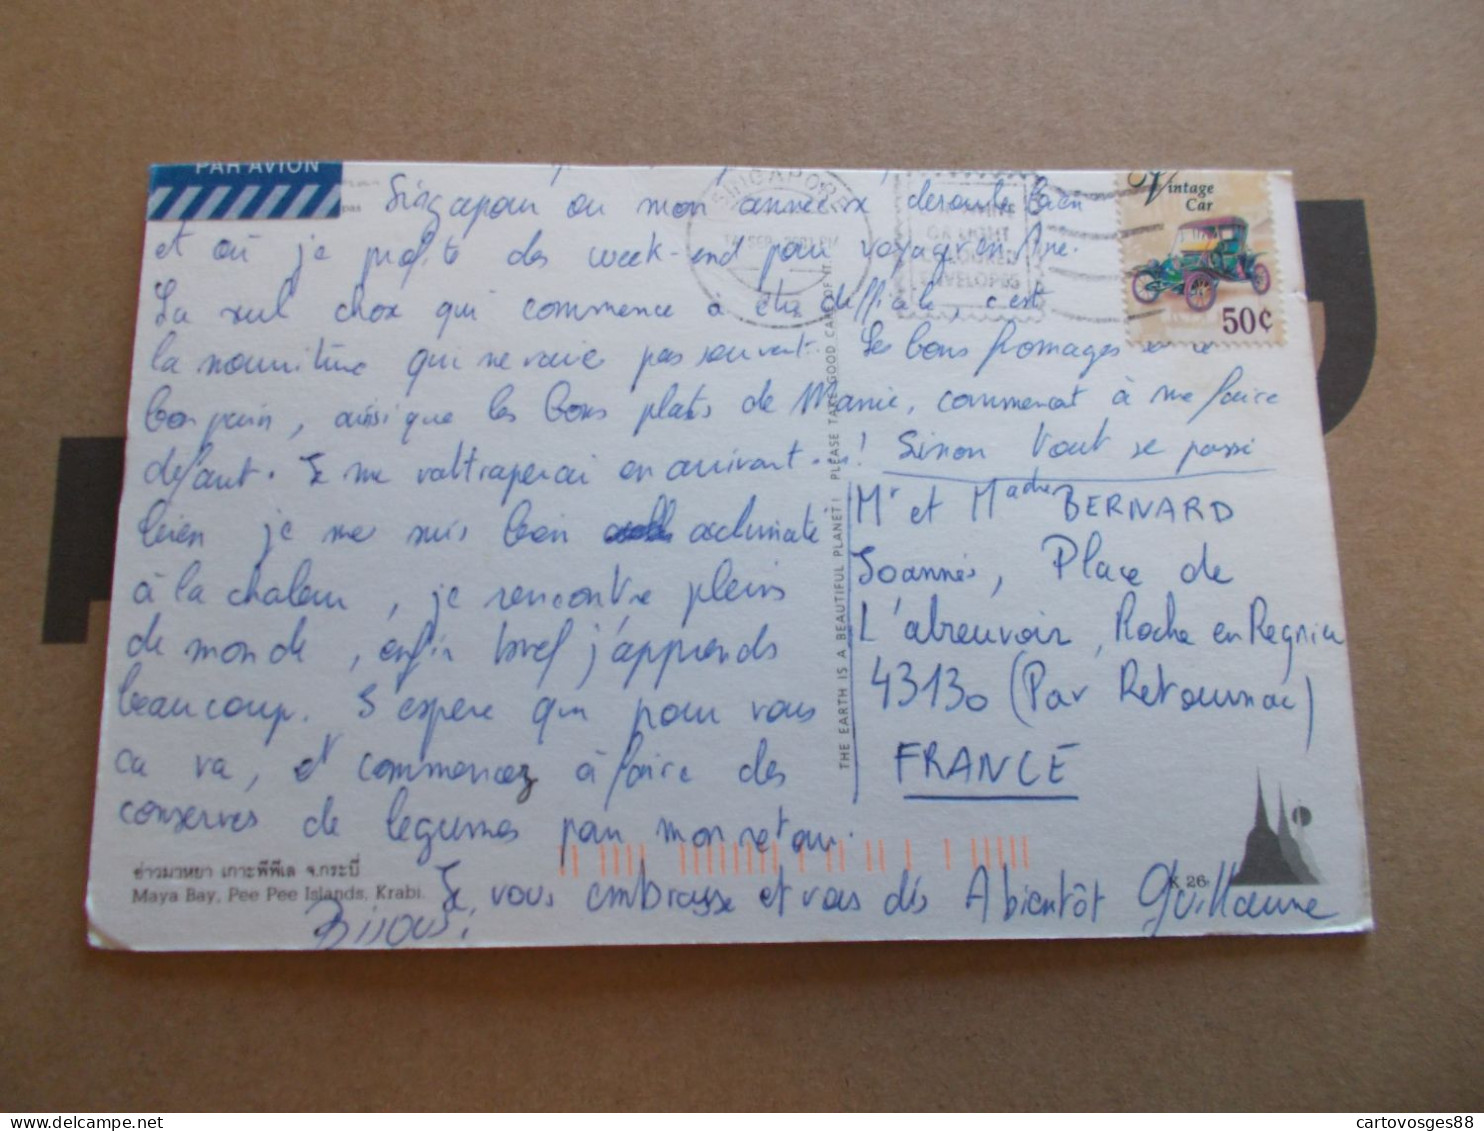 PAR AVION
Singapour ou mon année se déroule bien
et où je profite des week-end pour voyager en Asie.
La seul chose qui commence à être difficile, c'est
la nourriture qui ne varie pas souvent. Les bons fromages et le
bon pain, ainsi que les bons plats de Mamie, commencent à me faire
défaut. Je me rattraperai en arrivant...! Sinon tout se passe
bien je me suis bien acclimaté
à la chaleur, je rencontre pleins
de monde, enfin bref j'apprends
beaucoup. J'espère que pour vous
ca va, et commencez à faire des
conserves de legumes pour mon retour.
Je vous embrasse et vous dis A bientôt Guillaume
Bisous.
SINGAPORE
SEP 2001 PM
OR LIGHT
COLOURED
ENVELOPES
Vintage
Car
50¢
THE EARTH IS A BEAUTIFUL PLANET! PLEASE TAKE GOOD CARE OF IT
Mr et Madme BERNARD
Joannès, Place de
L'abreuvoir, Roche en Regnier
43130 (Par Retournac)
FRANCE
อ่าวมาหยา เกาะพีพีเล จ.กระบี่
Maya Bay, Pee Pee Islands, Krabi.
K 26
cartovosges88